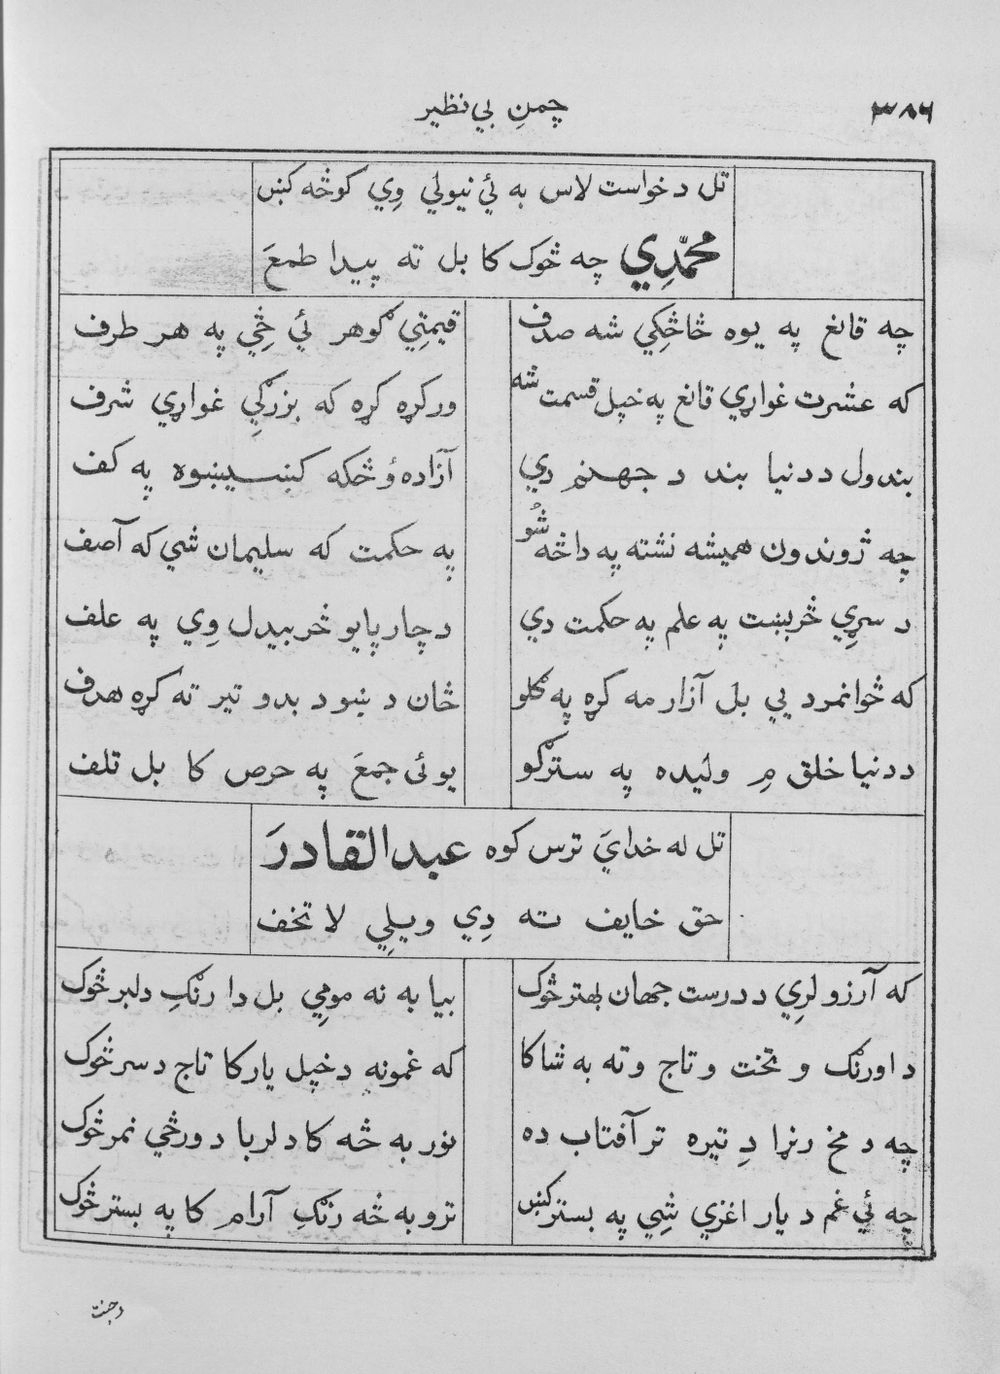 ٣٨٦ چمنِ بي نظير
تل د خواست لاس به ئي نيولي وِي کوڅه کښ
محمّدِي چه څوک کا بل ته پيدا طمعَ
چه قانع په يوه څاڅکِي شه صدف قيمتِي ګوهر ئي خِڅي په هر طرف
که عشرت غواړي قانع په خپل قسمت شه ورکړه کړه که بزرګي غواړي شرف
بندول د دنيا بند د جهنم دي آزاده وُ ځکه کښسيښوه په کف
چه ژوندون هميشه نشته په دا څه شُو په حکمت که سليمان شي که آصف
د سړِي څربښت په علم په حکمت دي د چارپايو څربيدل وِي په علف
که ځوانمرد يي بل آزار مه کړه په ګلو ځان د ښو د بدو تير ته کړه هدف
د دنيا خلق مِ وليده په سترګو يو ئي جمعَ په حرص کا بل تلف
تل له خدايَ ترس کوه عبدالقادرَ
حق خايف ته دِي ويلِي لا تخف
که آرزو لرِي د درست جهان بهتر څوک بيا به نه مومِي بل دا رنګِ دلبر څوک
د اورنګ و تخت و تاج وته به شا کا که غمونه د خپل يار کا تاج د سر څوک
چه د مخ رنړا دِ تيره تر آفتاب ده نور به څه کا دلربا د ورځي نمر څوک
چه ئي غم د يار اغزي شِي په بستر کښ ترو به څه رنګِ آرام کا په بستر څوک
د جنت